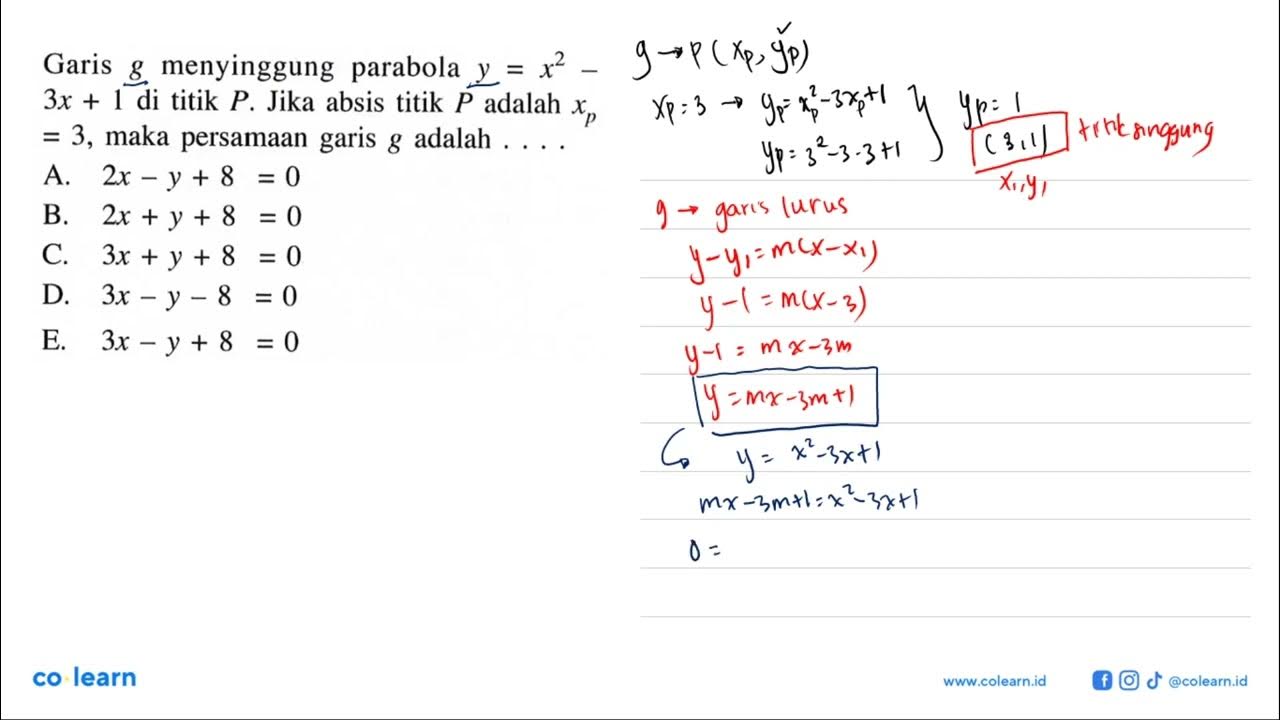 Garis g menyinggung parabola y = x² –
3x + 1 di titik P. Jika absis titik P adalah xₚ
= 3, maka persamaan garis g adalah . . . .
A. 2x – y + 8 = 0
B. 2x + y + 8 = 0
C. 3x + y + 8 = 0
D. 3x – y – 8 = 0
E. 3x – y + 8 = 0
g → P(xₚ, yₚ)
xₚ = 3 → yₚ = xₚ² – 3xₚ + 1
yₚ = 3² – 3·3 + 1
yₚ = 1
(3,1) titik singgung
x₁, y₁
g → garis lurus
y – y₁ = m(x – x₁)
y – 1 = m(x – 3)
y – 1 = mx – 3m
y = mx – 3m + 1
y = x² – 3x + 1
mx – 3m + 1 = x² – 3x + 1
0 =
co·learn
www.colearn.id @colearn.id